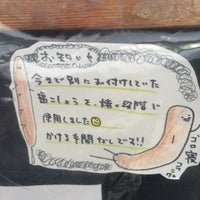 お知らせ
今まで別にお付けしていた
塩こしょうを、焼く段階で
使用しました
かける手間なしです!!
ゴロ寝